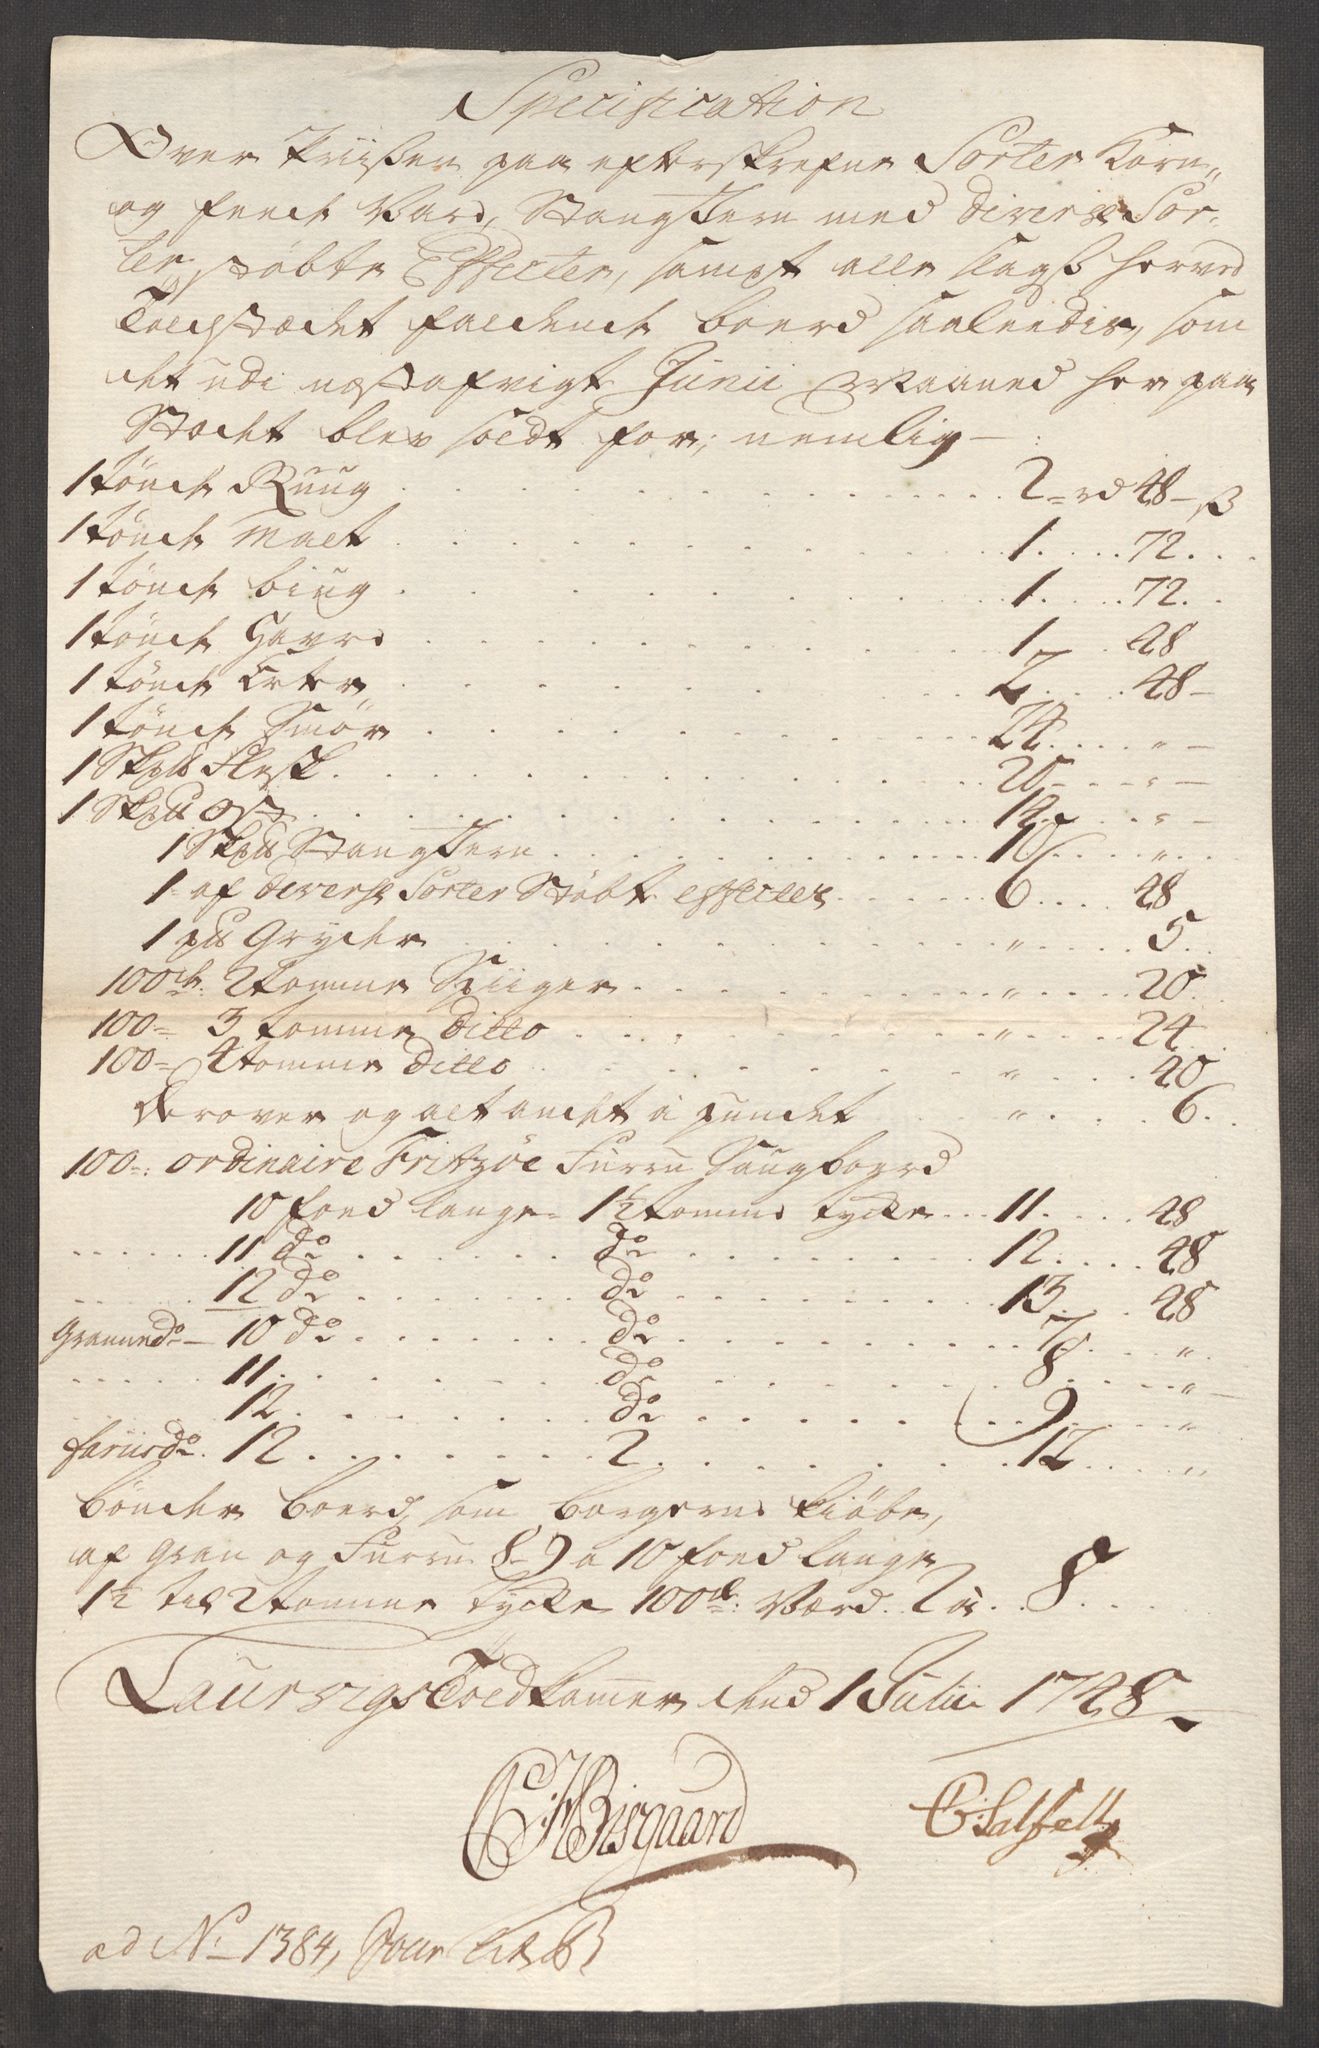 Specification
Over Priissen paa efterskrefne Sorter Korn„
og feede Vare, Stangjern med diverse Sor-
ter støbte Effecter, sampt alle slags herved
Toldstædet faldende boerd saaleedis, som
det udi næstafvigte Junii Maaned her paa
Stædet blev soldt for; nemlig -
1 tønde Ruug 2 rd 48 ß
1 tønde Malt 1 72
1 tønde biug 1 72
1 tønde Havre 1 48
1 tønde Erter 2 48
1 tønde Smør 24 „
1 Skpd Flesk 20 „
1 Skpd Ost „
1 Skpd Stangjern 16 „
1 af diverse Sorter Støbte effecter 6 48
1 pd Gryder „ 5
100de 2 tomme Spiiger „ 20
100 3 tomme Ditto „ 24
100 4 tomme Ditto „ 40
derover og alt andet à pundet „ 6
100 ordinaire Fritzöe Furru Saugboerd
10 foed lange 1½ tomme tycke 11 48
11 do do 12 48
12 do do 13 48
Graune do 10 do do 7 „
11 do 8 „
12 do 9 „
do 12 2 12 „
bönder boerd, som borgerne kiøbe,
af gran og Furru 8 9 a 10 foed lange
1½ til 2 tomme tycke 100de Værd 7 à 8
Laurvigs Toldkammer dend 1 Julii 1748
CHBisgaard C: Salfelt
ad No 1384, Litr B